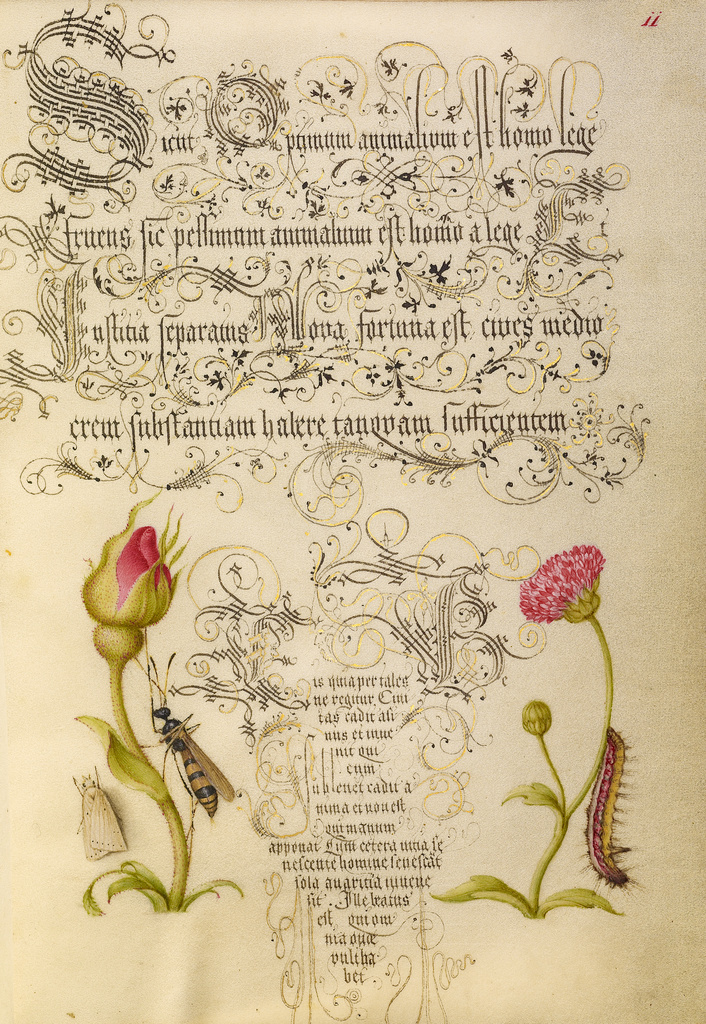 ii
Sicut Optimum animalium est homo lege
fruens sic pessimum animalium est homo a lege Et
Iustitia separatus Nova fortuna est cives medio
crem substantiam habere tanqvam sufficientem
His quia per tales Be
ne regitur. Civi
tas cadit asi
nus et inve
nit qui
eum
sublevet cadit a
nima et non est
qui manum
apponat Cum cetera vitia se
nescente homine senescāt
sola avaritia iuvene
sit. Ille beatus
est qui om
nia que
vult ha
bet.